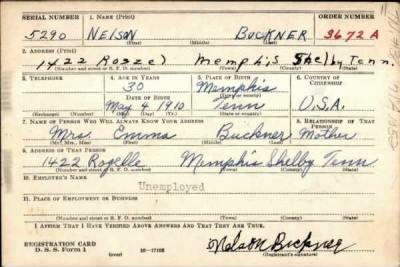 SERIAL NUMBER 1. NAME (Print) ORDER NUMBER
5290 NELSON BUCKNER 3672 A
(First) (Middle) (Last)
2. ADDRESS (Print)
1422 Rozzel Memphis Shelby Tenn.
(Number and street or R. F. D. number) (Town) (County) (State)
3. TELEPHONE 4. AGE IN YEARS 5. PLACE OF BIRTH 6. COUNTRY OF CITIZENSHIP
30 Memphis
DATE OF BIRTH (Town or county)
May 4 1910 Tenn U.S.A.
(Exchange) (Number) (Mo.) (Day) (Yr.) (State or country)
7. NAME OF PERSON WHO WILL ALWAYS KNOW YOUR ADDRESS 8. RELATIONSHIP OF THAT PERSON
Mrs. Emma Buckner Mother
(Mr., Mrs., Miss) (First) (Middle) (Last)
9. ADDRESS OF THAT PERSON
1422 Rozelle Memphis Shelby Tenn
(Number and street or R. F. D. number) (Town) (County) (State)
10. EMPLOYER'S NAME
Unemployed
11. PLACE OF EMPLOYMENT OR BUSINESS
(Number and street or R. F. D. number) (Town) (County) (State)
I AFFIRM THAT I HAVE VERIFIED ABOVE ANSWERS AND THAT THEY ARE TRUE.
REGISTRATION CARD Nelson Buckner
D. S. S. Form 1 16—17105 (Registrant's signature)